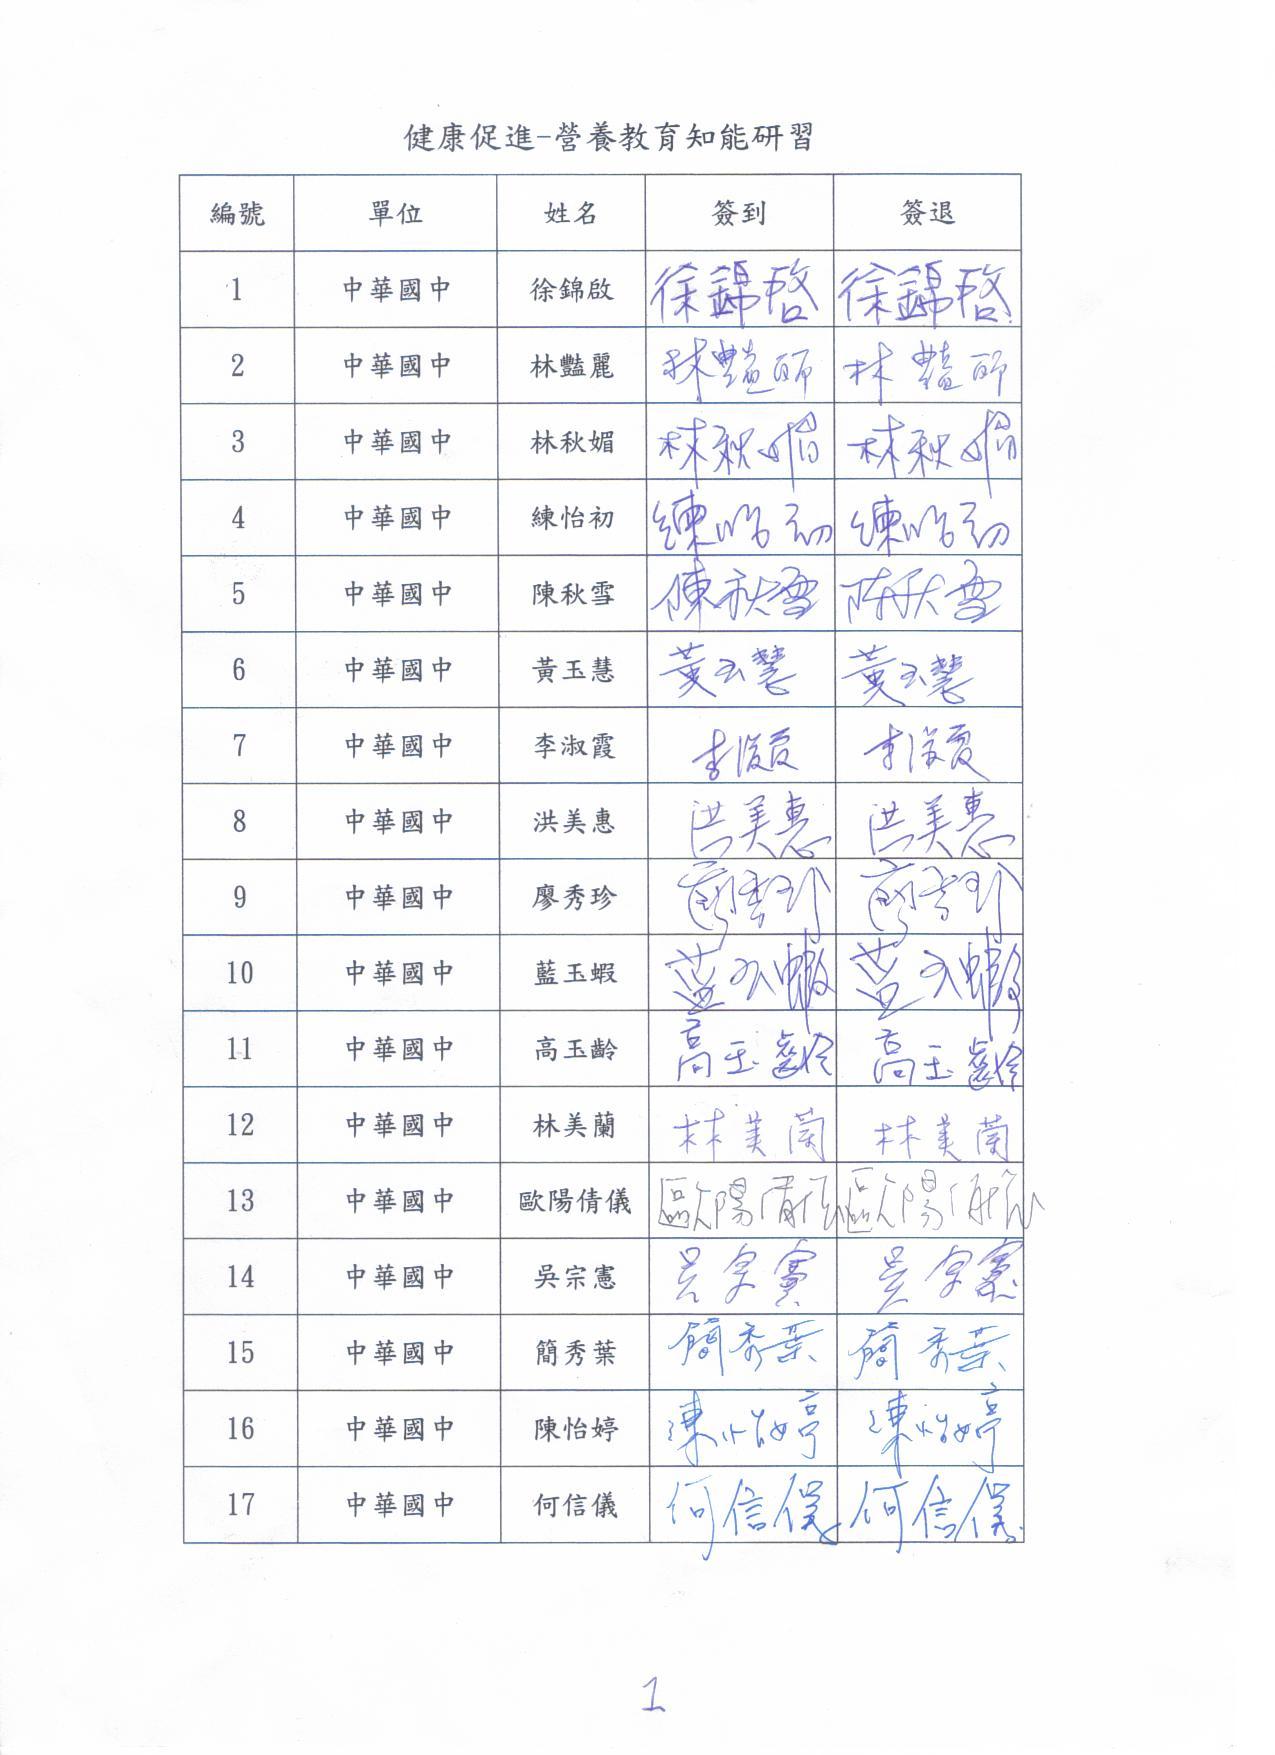 健康促進-營養教育知能研習
編號 單位 姓名 簽到 簽退
1 中華國中 徐錦啟 徐錦啓 徐錦啓
2 中華國中 林豔麗 林豔 林豔
3 中華國中 林秋媚 林秋媚 林秋媚
4 中華國中 練怡初 練怡初 練怡初
5 中華國中 陳秋雪 陳秋雪 陳秋雪
6 中華國中 黃玉慧 黃玉慧 黃玉慧
7 中華國中 李淑霞 李淑霞 李淑霞
8 中華國中 洪美惠 洪美惠 洪美惠
9 中華國中 廖秀珍 廖秀珍 廖秀珍
10 中華國中 藍玉蝦 藍玉蝦 藍玉蝦
11 中華國中 高玉齡 高玉齡 高玉齡
12 中華國中 林美蘭 林美蘭 林美蘭
13 中華國中 歐陽倩儀 歐陽倩儀 歐陽倩儀
14 中華國中 吳宗憲 吳宗憲 吳宗憲
15 中華國中 簡秀葉 簡秀葉 簡秀葉
16 中華國中 陳怡婷 陳怡婷 陳怡婷
17 中華國中 何信儀 何信儀 何信儀
1